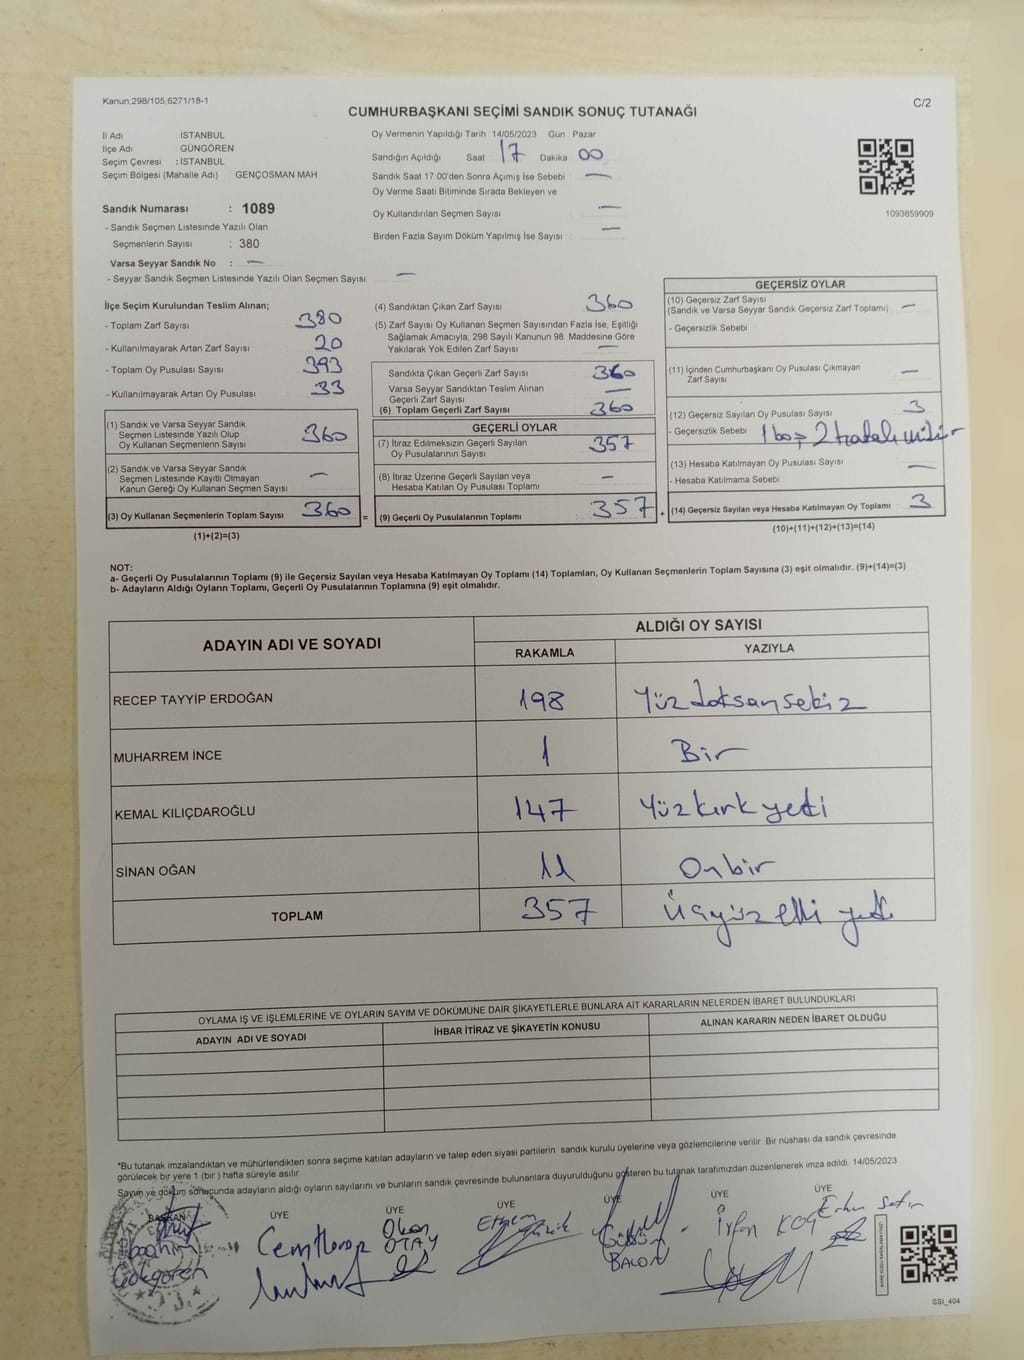 Kanun,298/105,6271/18-1
C/2
CUMHURBAŞKANI SEÇİMİ SANDIK SONUÇ TUTANAĞI
İl Adı : İSTANBUL
İlçe Adı : GÜNGÖREN
Seçim Çevresi : İSTANBUL
Seçim Bölgesi (Mahalle Adı) GENÇOSMAN MAH.
Oy Vermenin Yapıldığı Tarih : 14/05/2023 Gün : Pazar
Sandığın Açıldığı Saat 17 Dakika 00
Sandık Saat 17.00'den Sonra Açılmış İse Sebebi : —
Oy Verme Saati Bitiminde Sırada Bekleyen ve
Oy Kullandırılan Seçmen Sayısı —
Birden Fazla Sayım Döküm Yapılmış İse Sayısı : —
1093859909
Sandık Numarası : 1089
- Sandık Seçmen Listesinde Yazılı Olan
Seçmenlerin Sayısı : 380
Varsa Seyyar Sandık No : —
- Seyyar Sandık Seçmen Listesinde Yazılı Olan Seçmen Sayısı —
İlçe Seçim Kurulundan Teslim Alınan;
- Toplam Zarf Sayısı 380
- Kullanılmayarak Artan Zarf Sayısı 20
- Toplam Oy Pusulası Sayısı 393
- Kullanılmayarak Artan Oy Pusulası 33
(1) Sandık ve Varsa Seyyar Sandık
Seçmen Listesinde Yazılı Olup
Oy Kullanan Seçmenlerin Sayısı 360
(2) Sandık ve Varsa Seyyar Sandık
Seçmen Listesinde Kayıtlı Olmayan
Kanun Gereği Oy Kullanan Seçmen Sayısı —
(3) Oy Kullanan Seçmenlerin Toplam Sayısı 360
(1)+(2)=(3)
(4) Sandıktan Çıkan Zarf Sayısı 360
(5) Zarf Sayısı Oy Kullanan Seçmen Sayısından Fazla İse, Eşitliği
Sağlamak Amacıyla, 298 Sayılı Kanunun 98. Maddesine Göre
Yakılarak Yok Edilen Zarf Sayısı —
Sandıkta Çıkan Geçerli Zarf Sayısı 360
Varsa Seyyar Sandıktan Teslim Alınan
Geçerli Zarf Sayısı —
(6) Toplam Geçerli Zarf Sayısı 360
GEÇERLİ OYLAR
(7) İtiraz Edilmeksizin Geçerli Sayılan
Oy Pusulalarının Sayısı 357
(8) İtiraz Üzerine Geçerli Sayılan veya
Hesaba Katılan Oy Pusulası Toplamı —
= (9) Geçerli Oy Pusulalarının Toplamı 357
GEÇERSİZ OYLAR
(10) Geçersiz Zarf Sayısı
(Sandık ve Varsa Seyyar Sandık Geçersiz Zarf Toplamı) —
- Geçersizlik Sebebi
(11) İçinden Cumhurbaşkanı Oy Pusulası Çıkmayan
Zarf Sayısı —
(12) Geçersiz Sayılan Oy Pusulası Sayısı 3
- Geçersizlik Sebebi 1 boş 2 hatalı mühür
(13) Hesaba Katılmayan Oy Pusulası Sayısı —
- Hesaba Katılmama Sebebi
+ (14) Geçersiz Sayılan veya Hesaba Katılmayan Oy Toplamı 3
(10)+(11)+(12)+(13)=(14)
NOT:
a- Geçerli Oy Pusulalarının Toplamı (9) ile Geçersiz Sayılan veya Hesaba Katılmayan Oy Toplamı (14) Toplamları, Oy Kullanan Seçmenlerin Toplam Sayısına (3) eşit olmalıdır. (9)+(14)=(3)
b- Adayların Aldığı Oyların Toplamı, Geçerli Oy Pusulalarının Toplamına (9) eşit olmalıdır.
ADAYIN ADI VE SOYADI ALDIĞI OY SAYISI
RAKAMLA YAZIYLA
RECEP TAYYİP ERDOĞAN 198 Yüzdoksansekiz
MUHARREM İNCE 1 Bir
KEMAL KILIÇDAROĞLU 147 Yüzkırkyedi
SİNAN OĞAN 11 Onbir
TOPLAM 357 Üçyüzelli yedi
OYLAMA İŞ VE İŞLEMLERİNE VE OYLARIN SAYIM VE DÖKÜMÜNE DAİR ŞİKAYETLERLE BUNLARA AİT KARARLARIN NELERDEN İBARET BULUNDUKLARI
ADAYIN ADI VE SOYADI İHBAR İTİRAZ VE ŞİKAYETİN KONUSU ALINAN KARARIN NEDEN İBARET OLDUĞU
*Bu tutanak imzalandıktan ve mühürlendikten sonra seçime katılan adayların ve talep eden siyasi partilerin sandık kurulu üyelerine veya gözlemcilerine verilir. Bir nüshası da sandık çevresinde
görülecek bir yere 1 (bir) hafta süreyle asılır.
Sayım ve döküm sonucunda adayların aldığı oyların sayılarını ve bunların sandık çevresinde bulunanlara duyurulduğunu gösteren bu tutanak tarafımızdan düzenlenerek imza edildi. 14/05/2023
BAŞKAN ÜYE ÜYE ÜYE ÜYE ÜYE ÜYE
İbrahim
Gökgören
Okan
OTAY
İrfan KOÇ
SSI_404